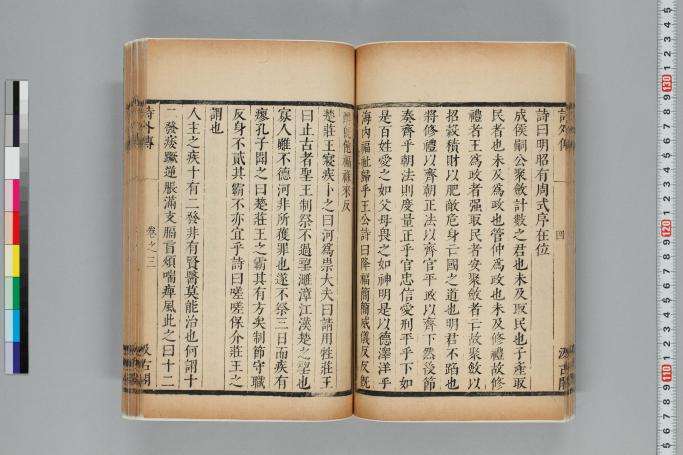 詩外傳 四 汲古閣
詩曰明昭有周式序在位
成侯嗣公聚斂計數之君也未及取民也子產取
民者也未及爲政也管仲爲政也未及修禮故修
禮者王爲政者强取民者安聚斂者亡故聚斂以
招寇積財以肥敵危身亡國之道也明君不蹈也
將修禮以齊朝正法以齊官平政以齊下然後節
奏齊乎朝法則度量正乎官忠信愛刑平乎下如
是百姓愛之如父母畏之如神明是以德澤洋乎
海内福祉歸乎王公詩曰降福簡簡威儀反反旣
醉旣飽福祿來反
楚莊王寢疾卜之曰河爲祟大夫曰請用牲莊王
曰止古者聖王制祭不過望濉漳江漢楚之望也
寡人雖不德河非所獲罪也遂不祭三日而疾有
瘳孔子聞之曰楚莊王之霸其有方矣制節守職
反身不貳其霸不亦宜乎詩曰嗟嗟保介莊王之
謂也
人主之疾十有二發非有賢醫莫能治也何謂十
二發痿蹷逆脹滿支膈盲煩喘痺風此之曰十二
詩外傳 卷之三 汲古閣